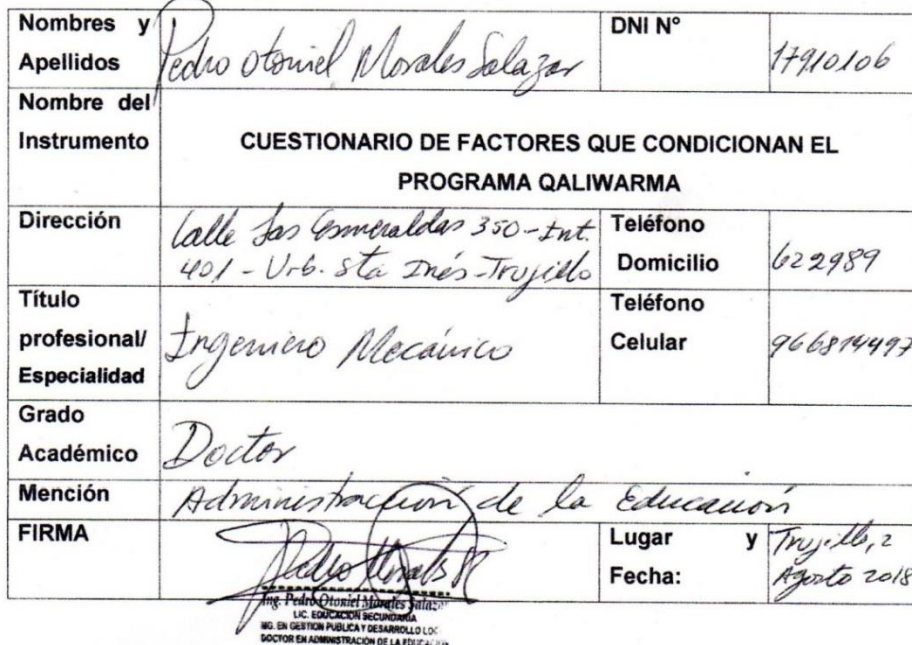 Nombres y Apellidos Pedro Otoniel Morales Salazar DNI N° 17910106
Nombre del Instrumento
CUESTIONARIO DE FACTORES QUE CONDICIONAN EL
PROGRAMA QALIWARMA
Dirección
Calle Las Esmeraldas 350-Int.
401 - Urb. Sta Inés-Trujillo
Teléfono
Domicilio
622989
Título
profesional/
Especialidad
Ingeniero Mecánico
Teléfono
Celular
Grado
Académico
Doctor
Mención
Administración de la Educación
FIRMA
Pedro Morales
Lugar y
Fecha:
Trujillo, 2
Agosto 2018
Ing. Pedro Otoniel Morales Salazar
LIC. EDUCACIÓN SECUNDARIA
MG. EN GESTION PUBLICA Y DESARROLLO LOC
DOCTOR EN ADMINISTRACIÓN DE LA EDUCACIÓN